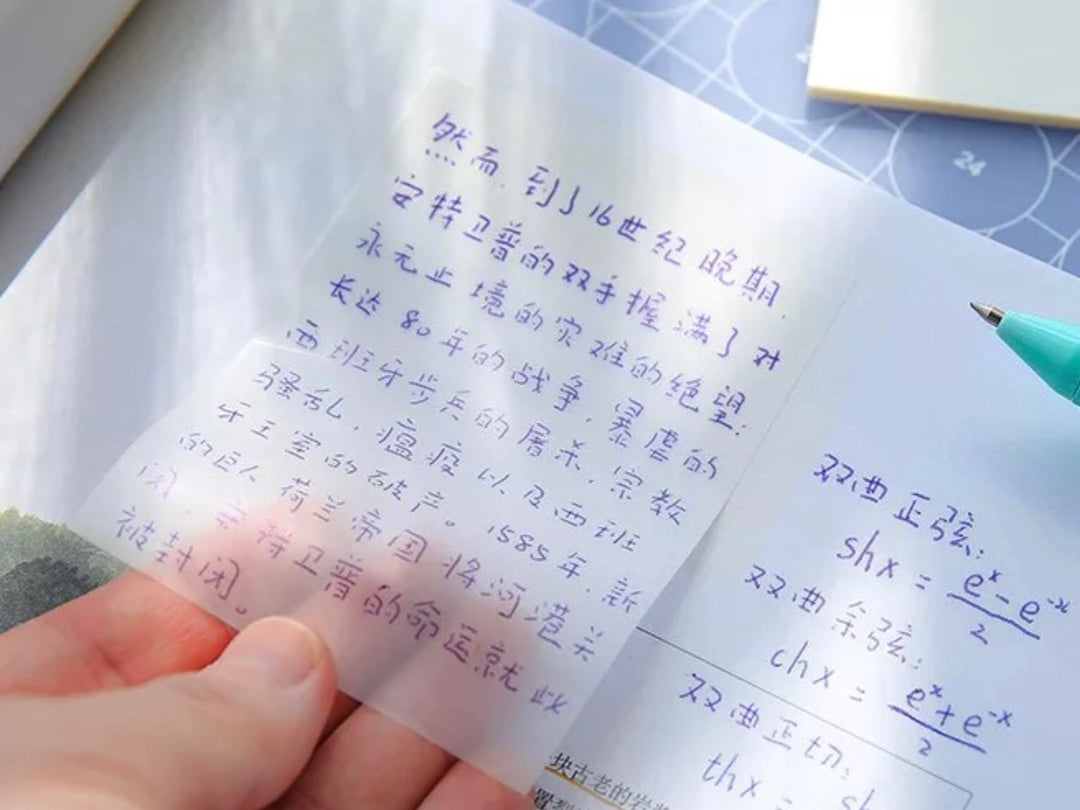 然而,到了16世纪晚期,
安特卫普的双手握满了对
永无止境的灾难的绝望:
长达80年的战争,暴虐的
西班牙步兵的屠杀,宗教
骚乱,瘟疫以及西班
牙王室的破产。1585年,新
的巨人荷兰帝国将河港关
闭,安特卫普的命运就此
被封闭。
24
双曲正弦:
shx = (e^x - e^-x)/2
双曲余弦:
chx = (e^x + e^-x)/2
双曲正切:
thx = sh
块古老的岩